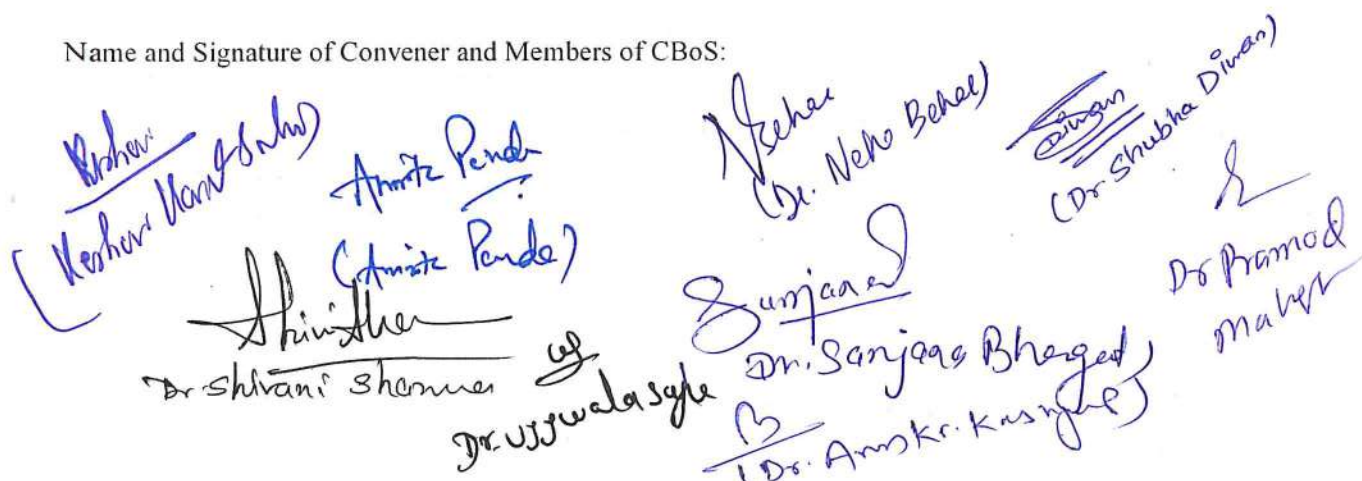 Name and Signature of Convener and Members of CBoS:
Keshav
(Keshav Kant Sahu)
Amrita Pande
(Amrita Pande)
Neha
(Dr. Neha Behar)
Diwan
(Dr Shubha Diwan)
Dr Pramod
Shivi
Dr. Shivani Sharma
Dr. Ujjwala
Sanjana
Dr. Sanjana Bhagat)
(Dr. Arun Kr. Kashyap)